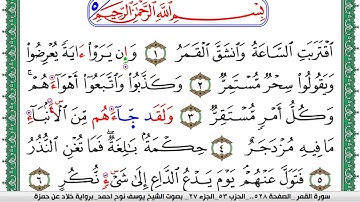 ٥
بِسْمِ ٱللَّهِ ٱلرَّحْمَٰنِ ٱلرَّحِيمِ
ٱقْتَرَبَتِ ٱلسَّاعَةُ وَٱنشَقَّ ٱلْقَمَرُ ١ وَإِن يَرَوْا۟ ءَايَةً يُعْرِضُوا۟
وَيَقُولُوا۟ سِحْرٌ مُّسْتَمِرٌّ ٢ وَكَذَّبُوا۟ وَٱتَّبَعُوٓا۟ أَهْوَآءَهُمْ ۚ
وَكُلُّ أَمْرٍ مُّسْتَقِرٌّ ٣ وَلَقَدْ جَآءَهُم مِّنَ ٱلْأَنۢبَآءِ
مَا فِيهِ مُزْدَجَرٌ ٤ حِكْمَةٌۢ بَٰلِغَةٌ ۖ فَمَا تُغْنِ ٱلنُّذُرُ
٥ فَتَوَلَّ عَنْهُمْ ۘ يَوْمَ يَدْعُ ٱلدَّاعِ إِلَىٰ شَىْءٍ نُّكُرٍ ٦
سورة القمر _ الصفحة ٥٢٨ _ الحزب ٥٣ _ الجزء ٢٧ _ بصوت الشيخ يوسف نوح احمد _ برواية خلاد عن حمزة